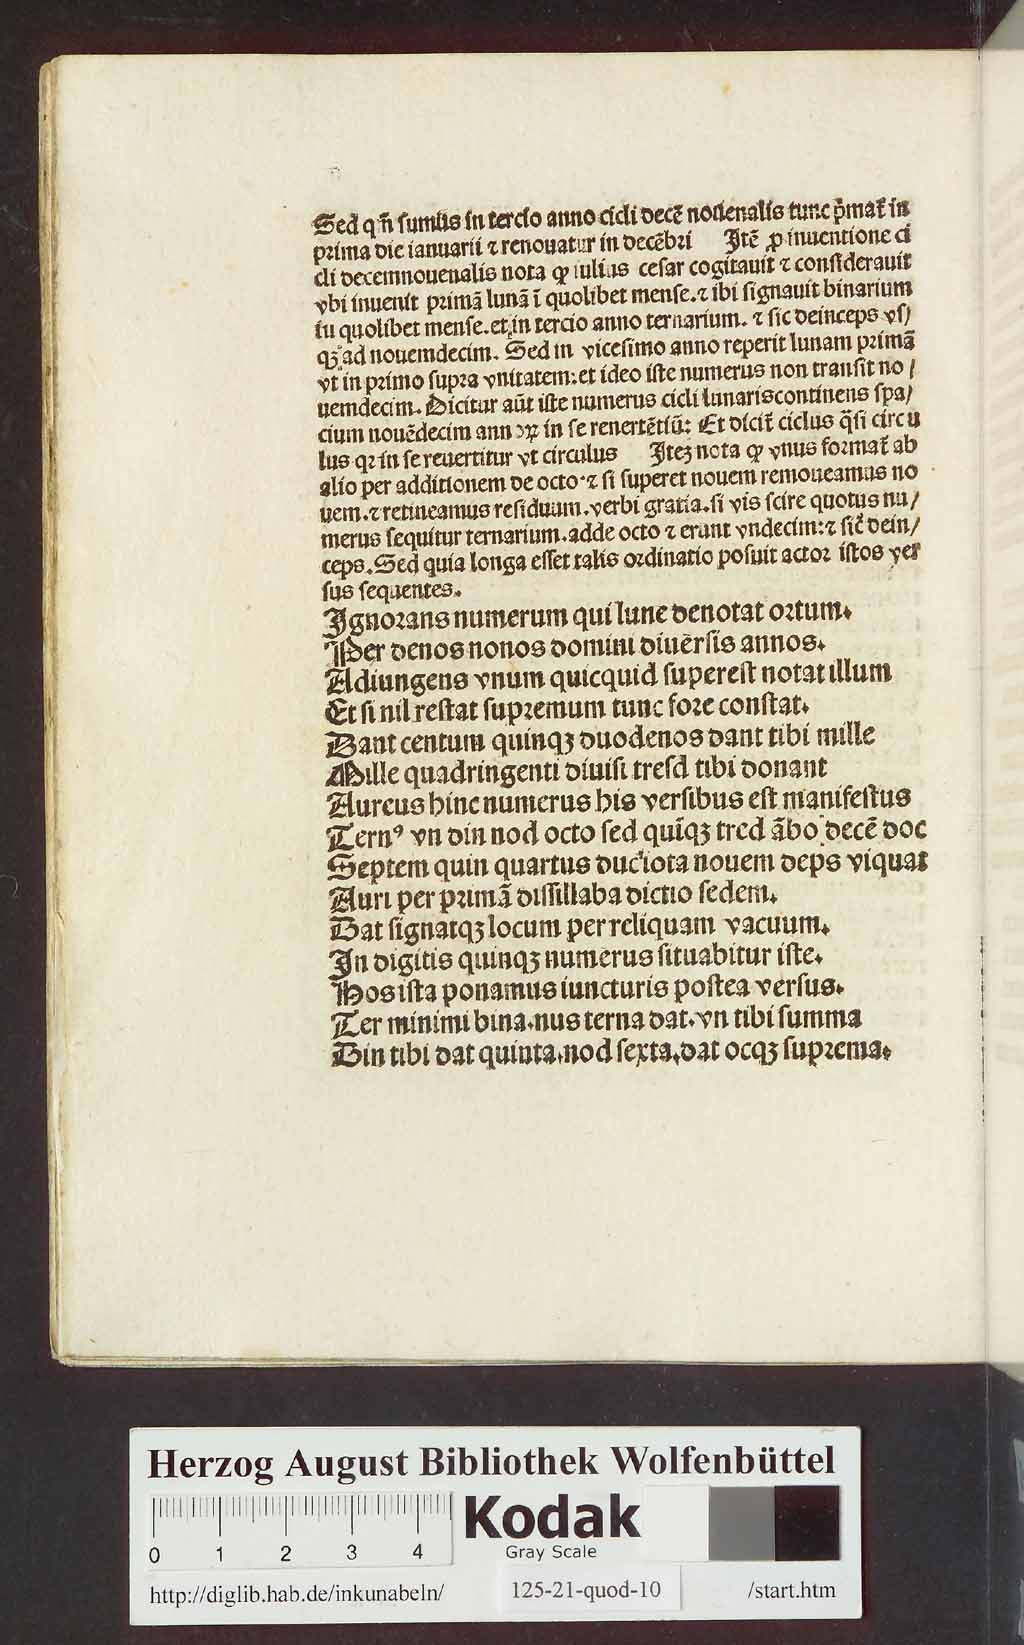 Sed qñ sumus in tercio anno cicli decē nouenalis tunc p̄mat᷑ in
prima die ianuarii ⁊ renouatur in decēbri Itē ꝓ inuentione ci
cli decemnouenalis nota ꝙ iulius cesar cogitauit ⁊ considerauit
vbi inuenit primā lunā ī quolibet mense.⁊ ibi signauit binarium
in quolibet mense.et in tercio anno ternarium. ⁊ sic deinceps vs/
qꝫ ad nouemdecim. Sed in vicesimo anno reperit lunam primā
vt in primo supra vnitatem:et ideo iste numerus non transit no/
uemdecim. Dicitur aūt iste numerus cicli lunariscontinens spa/
cium nouēdecim annoꝝ in se reuertētiū: Et dicit᷑ ciclus q̄si circu
lus qꝛ in se reuertitur vt circulus Iteꝫ nota ꝙ vnus format᷑ ab
alio per additionem de octo.⁊ si superet nouem remoueamus no
uem.⁊ retineamus residuum.verbi gratia.si vis scire quotus nu/
merus sequitur ternarium.adde octo ⁊ erunt vndecim:⁊ sic dein/
ceps. Sed quia longa esset talis ordinatio posuit actor istos ver
sus sequentes.
Ignorans numerum qui lune denotat ortum.
Per denos nonos domini diuersis annos.
Adiungens vnum quicquid superest notat illum
Et si nil restat supremum tunc fore constat.
Dant centum quinqꝫ duodenos dant tibi mille
Mille quadringenti diuisi tresd tibi donant
Aureus hinc numerus his versibus est manifestus
Ternꝰ vn din nod octo sed quīqꝫ tred ābo decē doc
Septem quin quartus duc iota nouem deps viquat
Auri per primā dissillaba dictio sedem.
Dat signatqꝫ locum per reliquam vacuum.
In digitis quinqꝫ numerus situabitur iste.
Hos ista ponamus iuncturis postea versus.
Ter minimi bina.nus terna dat.vn tibi summa
Din tibi dat quinta.nod sexta.dat ocqꝫ suprema.
Herzog August Bibliothek Wolfenbüttel
0 1 2 3 4
Kodak
Gray Scale
http://diglib.hab.de/inkunabeln/ 125-21-quod-10 /start.htm